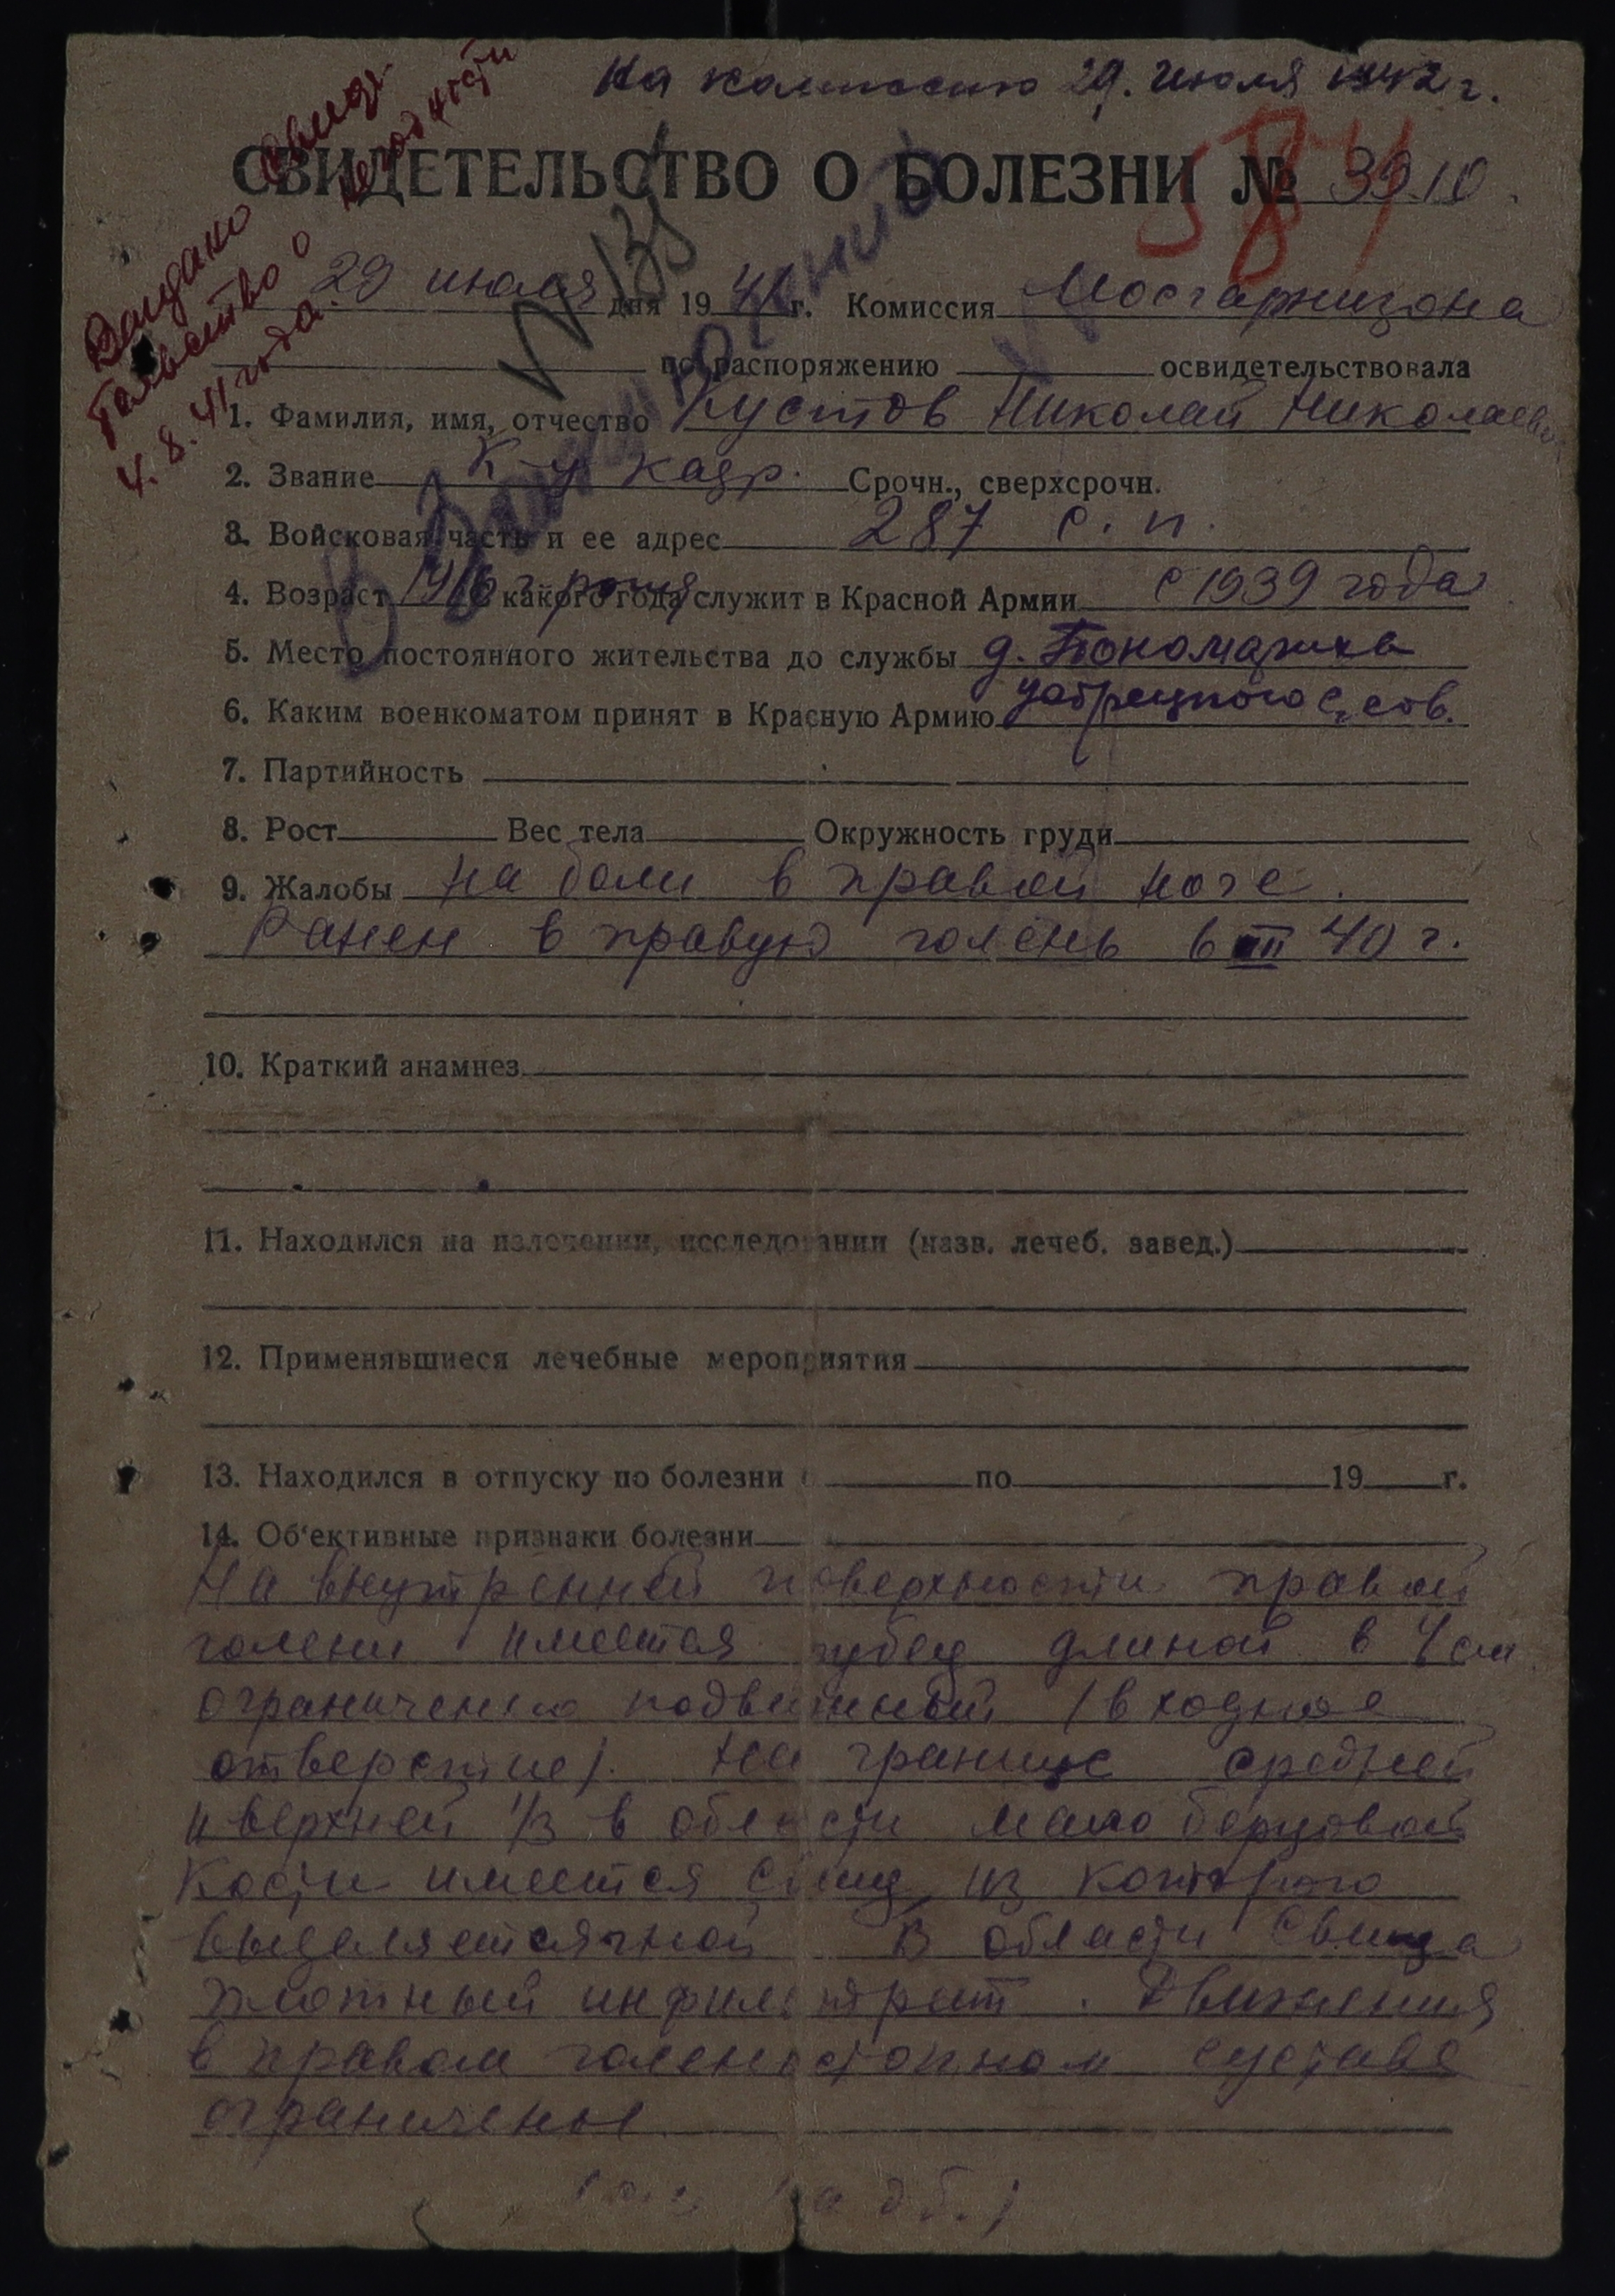 На комиссию 29. июля 1942 г.
СВИДЕТЕЛЬСТВО О БОЛЕЗНИ № 3910
584
Выдано свиде-
тельство о негодности
4. 8. 41 года.
29 июля дня 1941 г. Комиссия Мосгарнизона
по распоряжению освидетельствовала
1. Фамилия, имя, отчество Кустов Николай Николаевич
2. Звание К-ц кадр. Срочн., сверхсрочн.
3. Войсковая часть и ее адрес 287 с. п.
4. Возраст 1916 г. рожд. С какого года служит в Красной Армии с 1939 года
5. Место постоянного жительства до службы д. Пономариха
6. Каким военкоматом принят в Красную Армию с. сов.
7. Партийность
8. Рост Вес тела Окружность груди
9. Жалобы на боли в правой ноге.
Ранен в правую голень в III 40 г.
10. Краткий анамнез
11. Находился на излечении, исследовании (назв. лечеб. завед.)
12. Применявшиеся лечебные мероприятия
13. Находился в отпуску по болезни с по 19 г.
14. Об'ективные признаки болезни
На внутренней поверхности правой
голени имеется рубец длиной в 4 см
ограничено подвижный (входное
отверстие). На границе средней
и верхней 1/3 в области мало берцовой
кости имеется свищ из которого
выделяется гной В области свища
плотный инфильтрат. Движения
в правом голеностопном суставе
ограничены